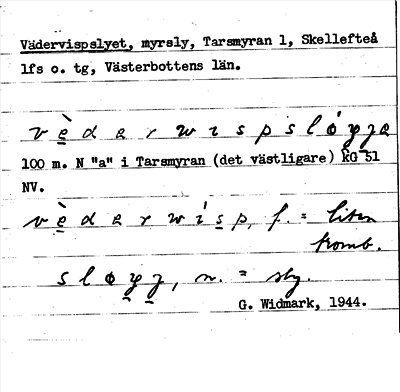 Vädervispslyet, myrsly, Tarsmyran 1, Skellefteå
lfs o. tg, Västerbottens län.
vèdərwispsløyjə
100 m. N "a" i Tarsmyran (det västligare) kG 51
NV.
vèdərwisp, f. = liten
tromb.
sløyj, n. = sly.
G. Widmark, 1944.